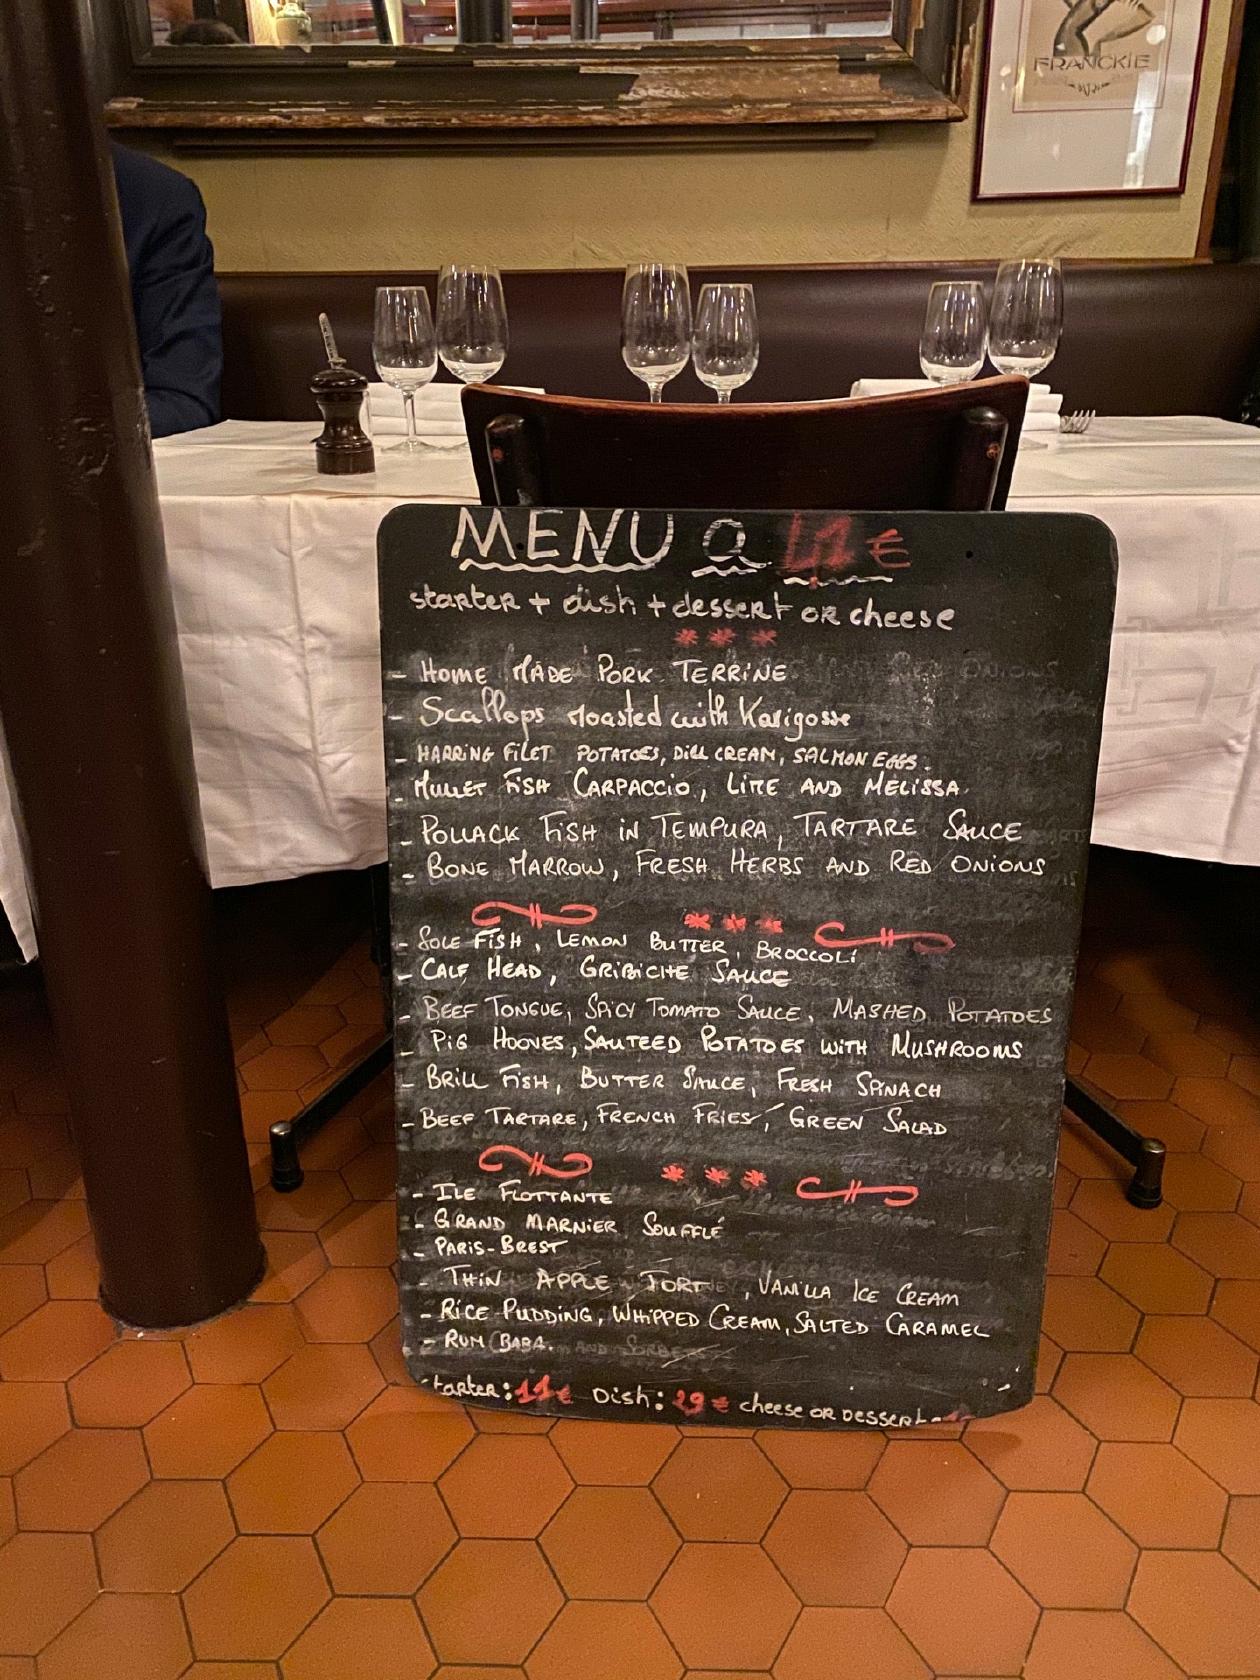 FRANCKIE
MENU a 41 €
starter + dish + dessert or cheese
- HOME MADE PORK TERRINE
- Scallops roasted with Karigosse
- HARRING FILET POTATOES, DILL CREAM, SALMON EGGS.
- MULLET FISH CARPACCIO, LIME AND MELISSA.
- POLLACK FISH IN TEMPURA, TARTARE SAUCE
- BONE MARROW, FRESH HERBS AND RED ONIONS
- SOLE FISH, LEMON BUTTER, BROCCOLI
- CALF HEAD, GRIBICHE SAUCE
- BEEF TONGUE, SPICY TOMATO SAUCE, MASHED POTATOES
- PIG HOOVES, SAUTEED POTATOES WITH MUSHROOMS
- BRILL FISH, BUTTER SAUCE, FRESH SPINACH
- BEEF TARTARE, FRENCH FRIES, GREEN SALAD
- ILE FLOTTANTE
- GRAND MARNIER SOUFFLÉ
- PARIS-BREST
- THIN APPLE TORT, VANILLA ICE CREAM
- RICE PUDDING, WHIPPED CREAM, SALTED CARAMEL
- RUM BABA.
starter: 11€ Dish: 29 € cheese or Dessert